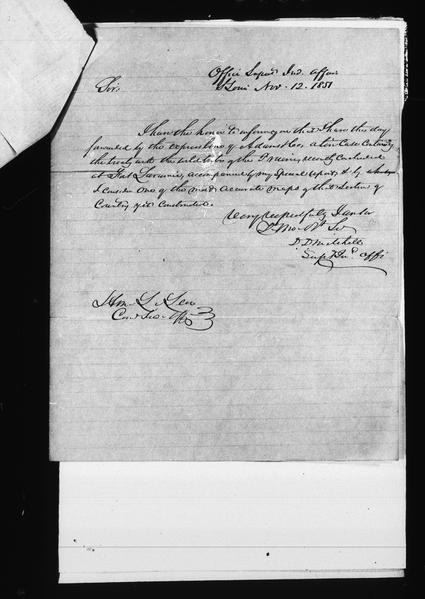 Office Supdt Ind. Affairs
St Louis Nov. 12. 1851
Sir,
I have the honor to inform you that I have this day
forwarded by the express of Adams &Co, a tin Case Containing
the treaty with the wild tribes of the Prairies, recently Concluded
at Fort Laramie, accompanied by my Special report, & by
I consider one of the most accurate maps of that Section of
Country yet Constructed.
Very respectfully I am Sir
Yr. Mo. Obt Sv
D. D. Mitchell
Supt Ind Affs
Hon. L. Lea
Com. Ind. Affs